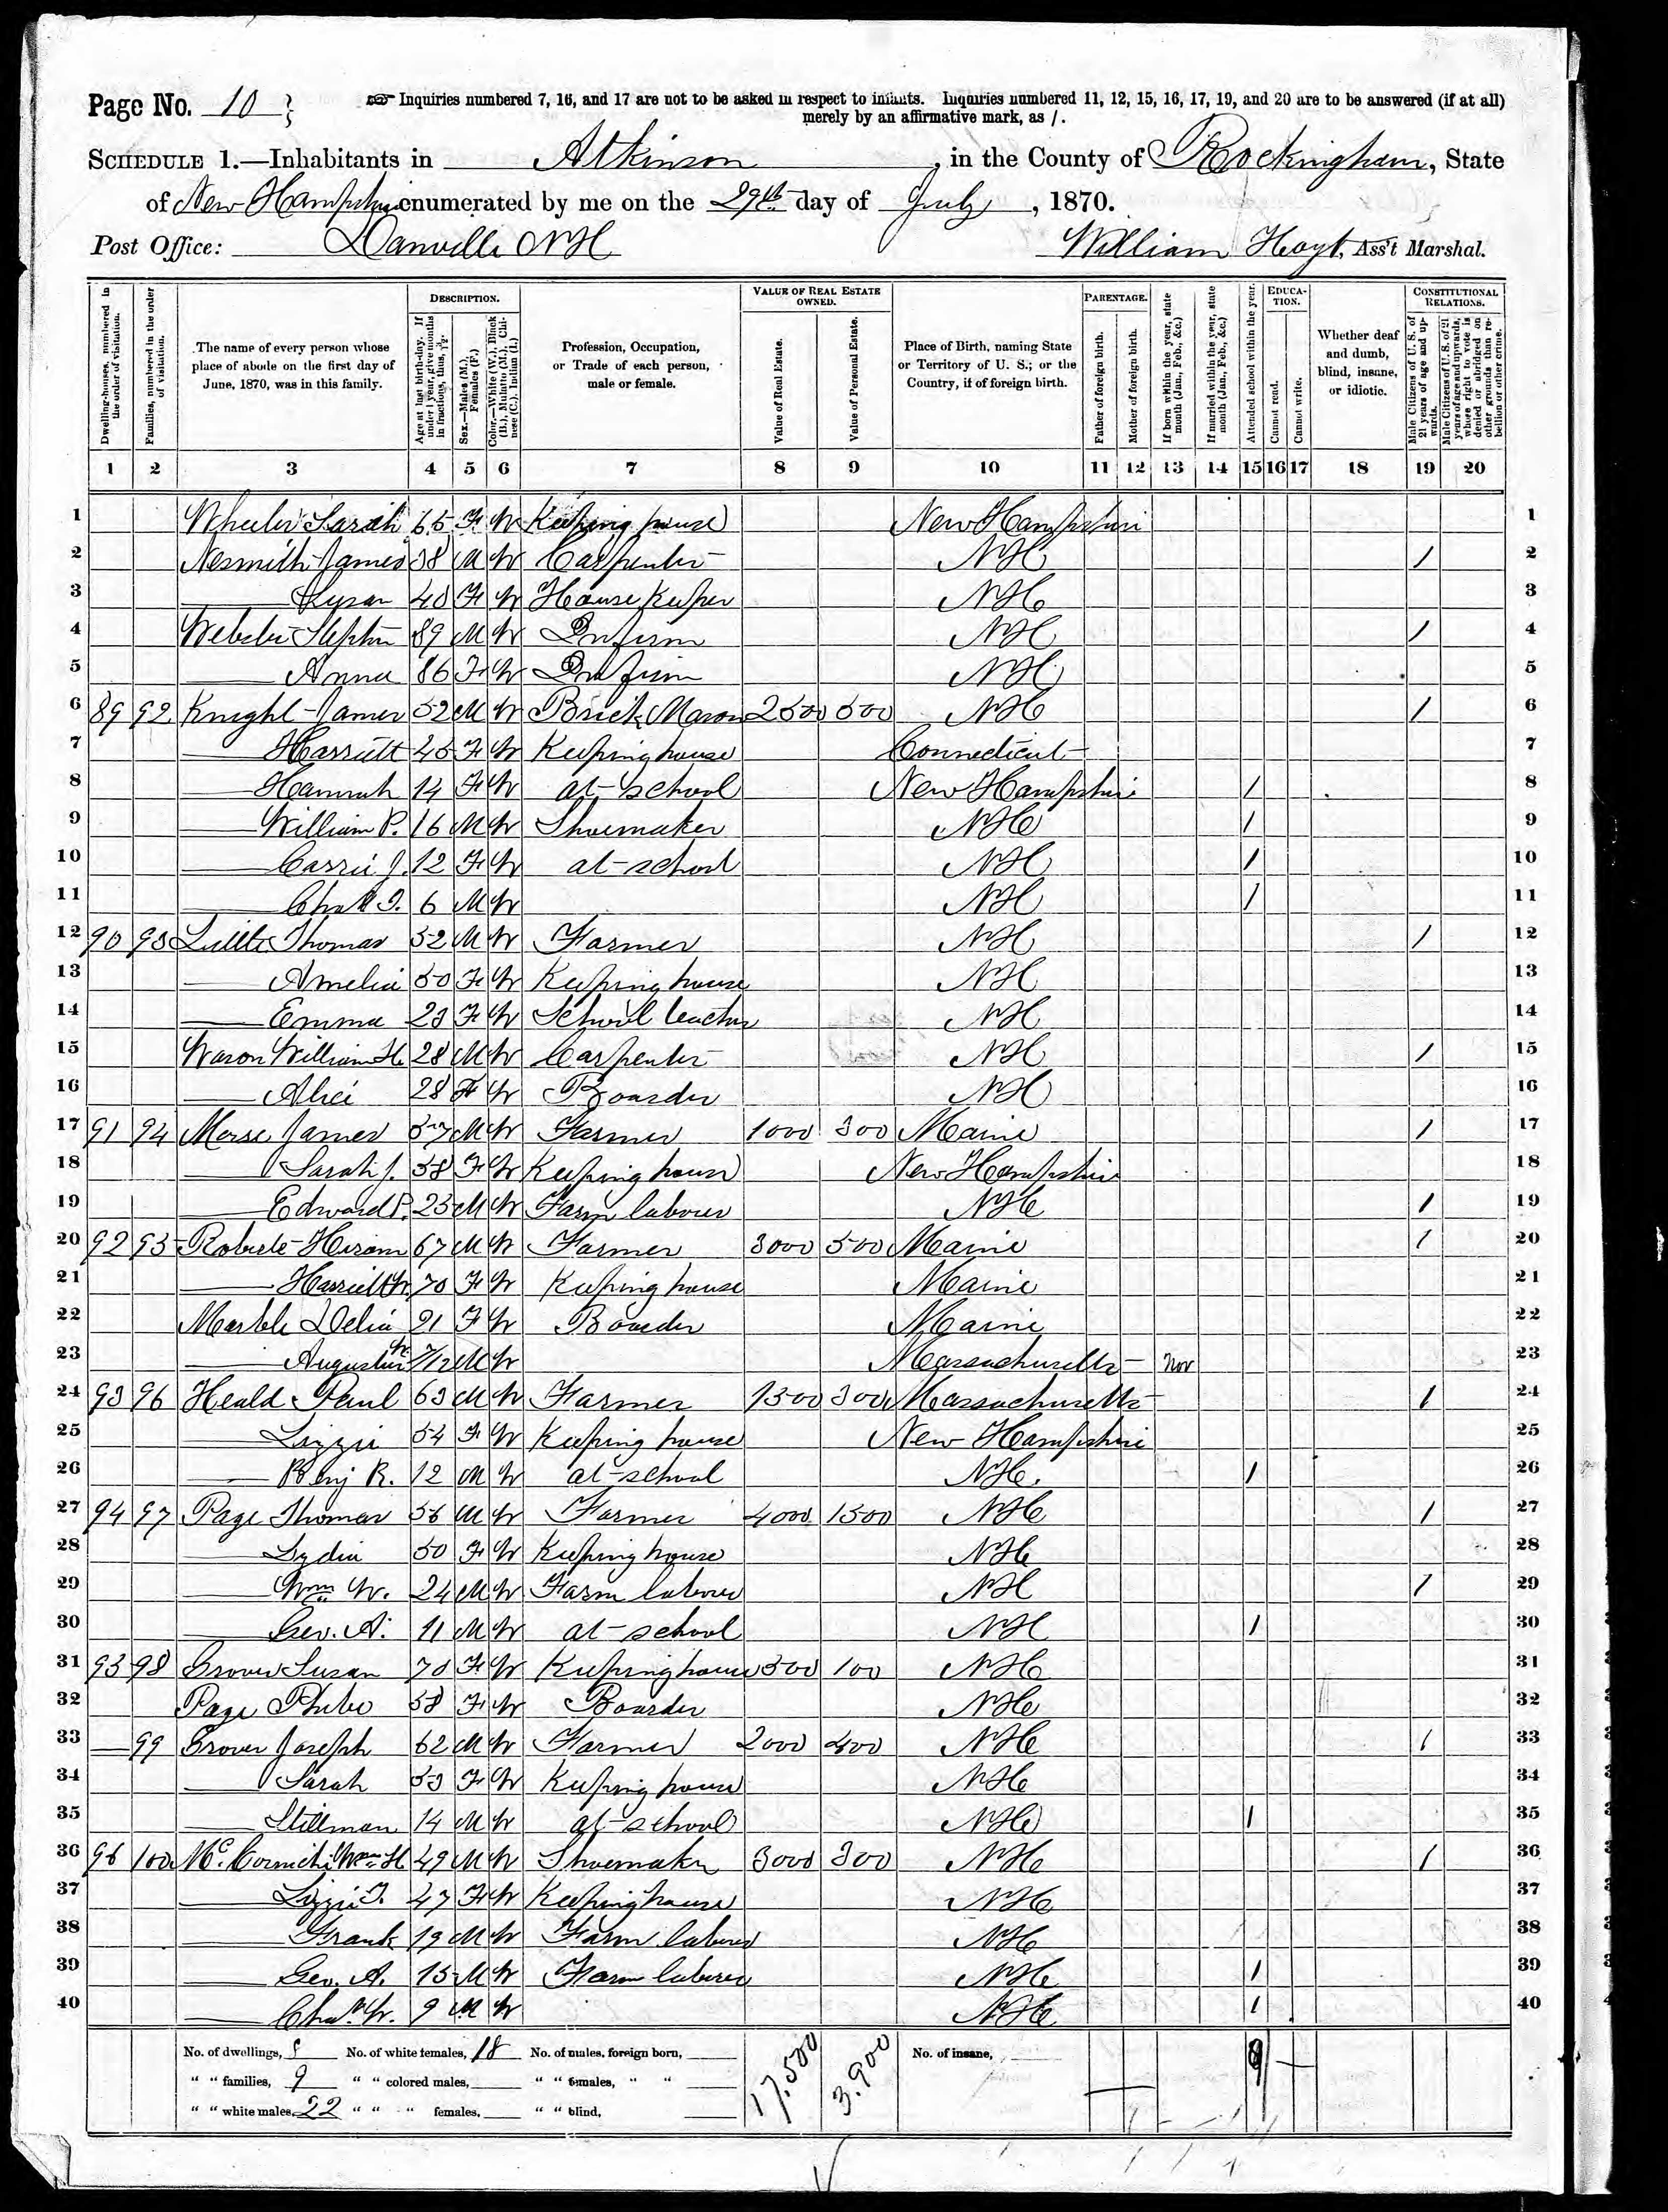 Page No. 10
☞ Inquiries numbered 7, 16, and 17 are not to be asked in respect to infants. Inquiries numbered 11, 12, 15, 16, 17, 19, and 20 are to be answered (if at all)
merely by an affirmative mark, as /.
SCHEDULE 1.—Inhabitants in Atkinson, in the County of Rockingham, State
of New Hampshire enumerated by me on the 29th day of July, 1870.
Post Office: Danville NH William Hoyt, Ass't Marshal.
Dwelling-houses, numbered in the order of visitation.
Families, numbered in the order of visitation.
The name of every person whose place of abode on the first day of June, 1870, was in this family.
DESCRIPTION.
Age at last birth-day. If under 1 year, give months in fractions, thus, 3/12.
Sex.—Males (M.), Females (F.)
Color.—White (W.), Black (B.), Mulatto (M.), Chinese (C.), Indian (I.)
Profession, Occupation, or Trade of each person, male or female.
VALUE OF REAL ESTATE OWNED.
Value of Real Estate.
Value of Personal Estate.
Place of Birth, naming State or Territory of U. S.; or the Country, if of foreign birth.
PARENTAGE.
Father of foreign birth.
Mother of foreign birth.
If born within the year, state month (Jan., Feb., &c.)
If married within the year, state month (Jan., Feb., &c.)
Attended school within the year.
EDUCATION.
Cannot read.
Cannot write.
Whether deaf and dumb, blind, insane, or idiotic.
CONSTITUTIONAL RELATIONS.
Male Citizens of U. S. of 21 years of age and upwards.
Male Citizens of U. S. of 21 years of age and upwards, whose right to vote is denied or abridged on other grounds than rebellion or other crime.
1 2 3 4 5 6 7 8 9 10 11 12 13 14 15 16 17 18 19 20
1 Wheeler Sarah 65 F W Keeping house New Hampshire 1
2 Nesmith James 38 M W Carpenter NH / 2
3 —— Susan 40 F W House Keeper NH 3
4 Webster Stephen 89 M W Infirm NH / 4
5 —— Anna 86 F W Infirm NH 5
6 89 92 Knight James 52 M W Brick Mason 2500 500 NH / 6
7 —— Harriett 45 F W Keeping house Connecticut 7
8 —— Hannah 14 F W at school New Hampshire / 8
9 —— William P. 16 M W Shoemaker NH / 9
10 —— Carrie J. 12 F W at school NH / 10
11 —— 6 M W NH / 11
12 90 93 Thomas 52 M W Farmer NH / 12
13 —— Amelia 50 F W Keeping house NH 13
14 —— Emma 23 F W School teacher NH 14
15 Wason William H 28 M W Carpenter NH / 15
16 —— Alice 28 F W Boarder NH 16
17 91 94 Morse James 57 M W Farmer 1000 300 Maine / 17
18 —— Sarah J. 58 F W Keeping house New Hampshire 18
19 —— Edward P. 25 M W Farm laborer NH / 19
20 92 95 Roberts Hiram 67 M W Farmer 3000 500 Maine / 20
21 —— Harriett W. 70 F W Keeping house Maine 21
22 Marble Delia 21 F W Boarder Maine 22
23 —— Augustus W. 7/12 M W Massachusetts Nov 23
24 93 96 Heald Paul 63 M W Farmer 1500 300 Massachusetts / 24
25 —— Lizzie 54 F W Keeping house New Hampshire 25
26 —— Benj R. 12 M W at school NH. / 26
27 94 97 Page Thomas 56 M W Farmer 4000 1500 NH / 27
28 —— Lydia 50 F W Keeping house NH 28
29 —— Wm W. 24 M W Farm laborer NH / 29
30 —— Geo. A. 11 M W at school NH / 30
31 95 98 Grover Susan 70 F W Keeping house 500 100 NH 31
32 Page Phebe 58 F W Boarder NH 32
33 — 99 Grover Joseph 62 M W Farmer 2000 400 NH / 33
34 —— Sarah 53 F W Keeping house NH 34
35 —— Stillman 14 M W at school NH / 35
36 96 100 Wm H 49 M W Shoemaker 3000 300 NH / 36
37 —— Lizzie F. 47 F W Keeping house NH 37
38 —— Frank 19 M W Farm laborer NH 38
39 —— Geo. A. 15 M W Farm laborer NH / 39
40 —— Chas. W. 9 M W NH / 40
No. of dwellings, 8 No. of white females, 18 No. of males, foreign born, 17.500 3.900 No. of insane,
" " families, 9 " " colored males, " " females, " "
" " white males, 22 " " " females, " " blind,